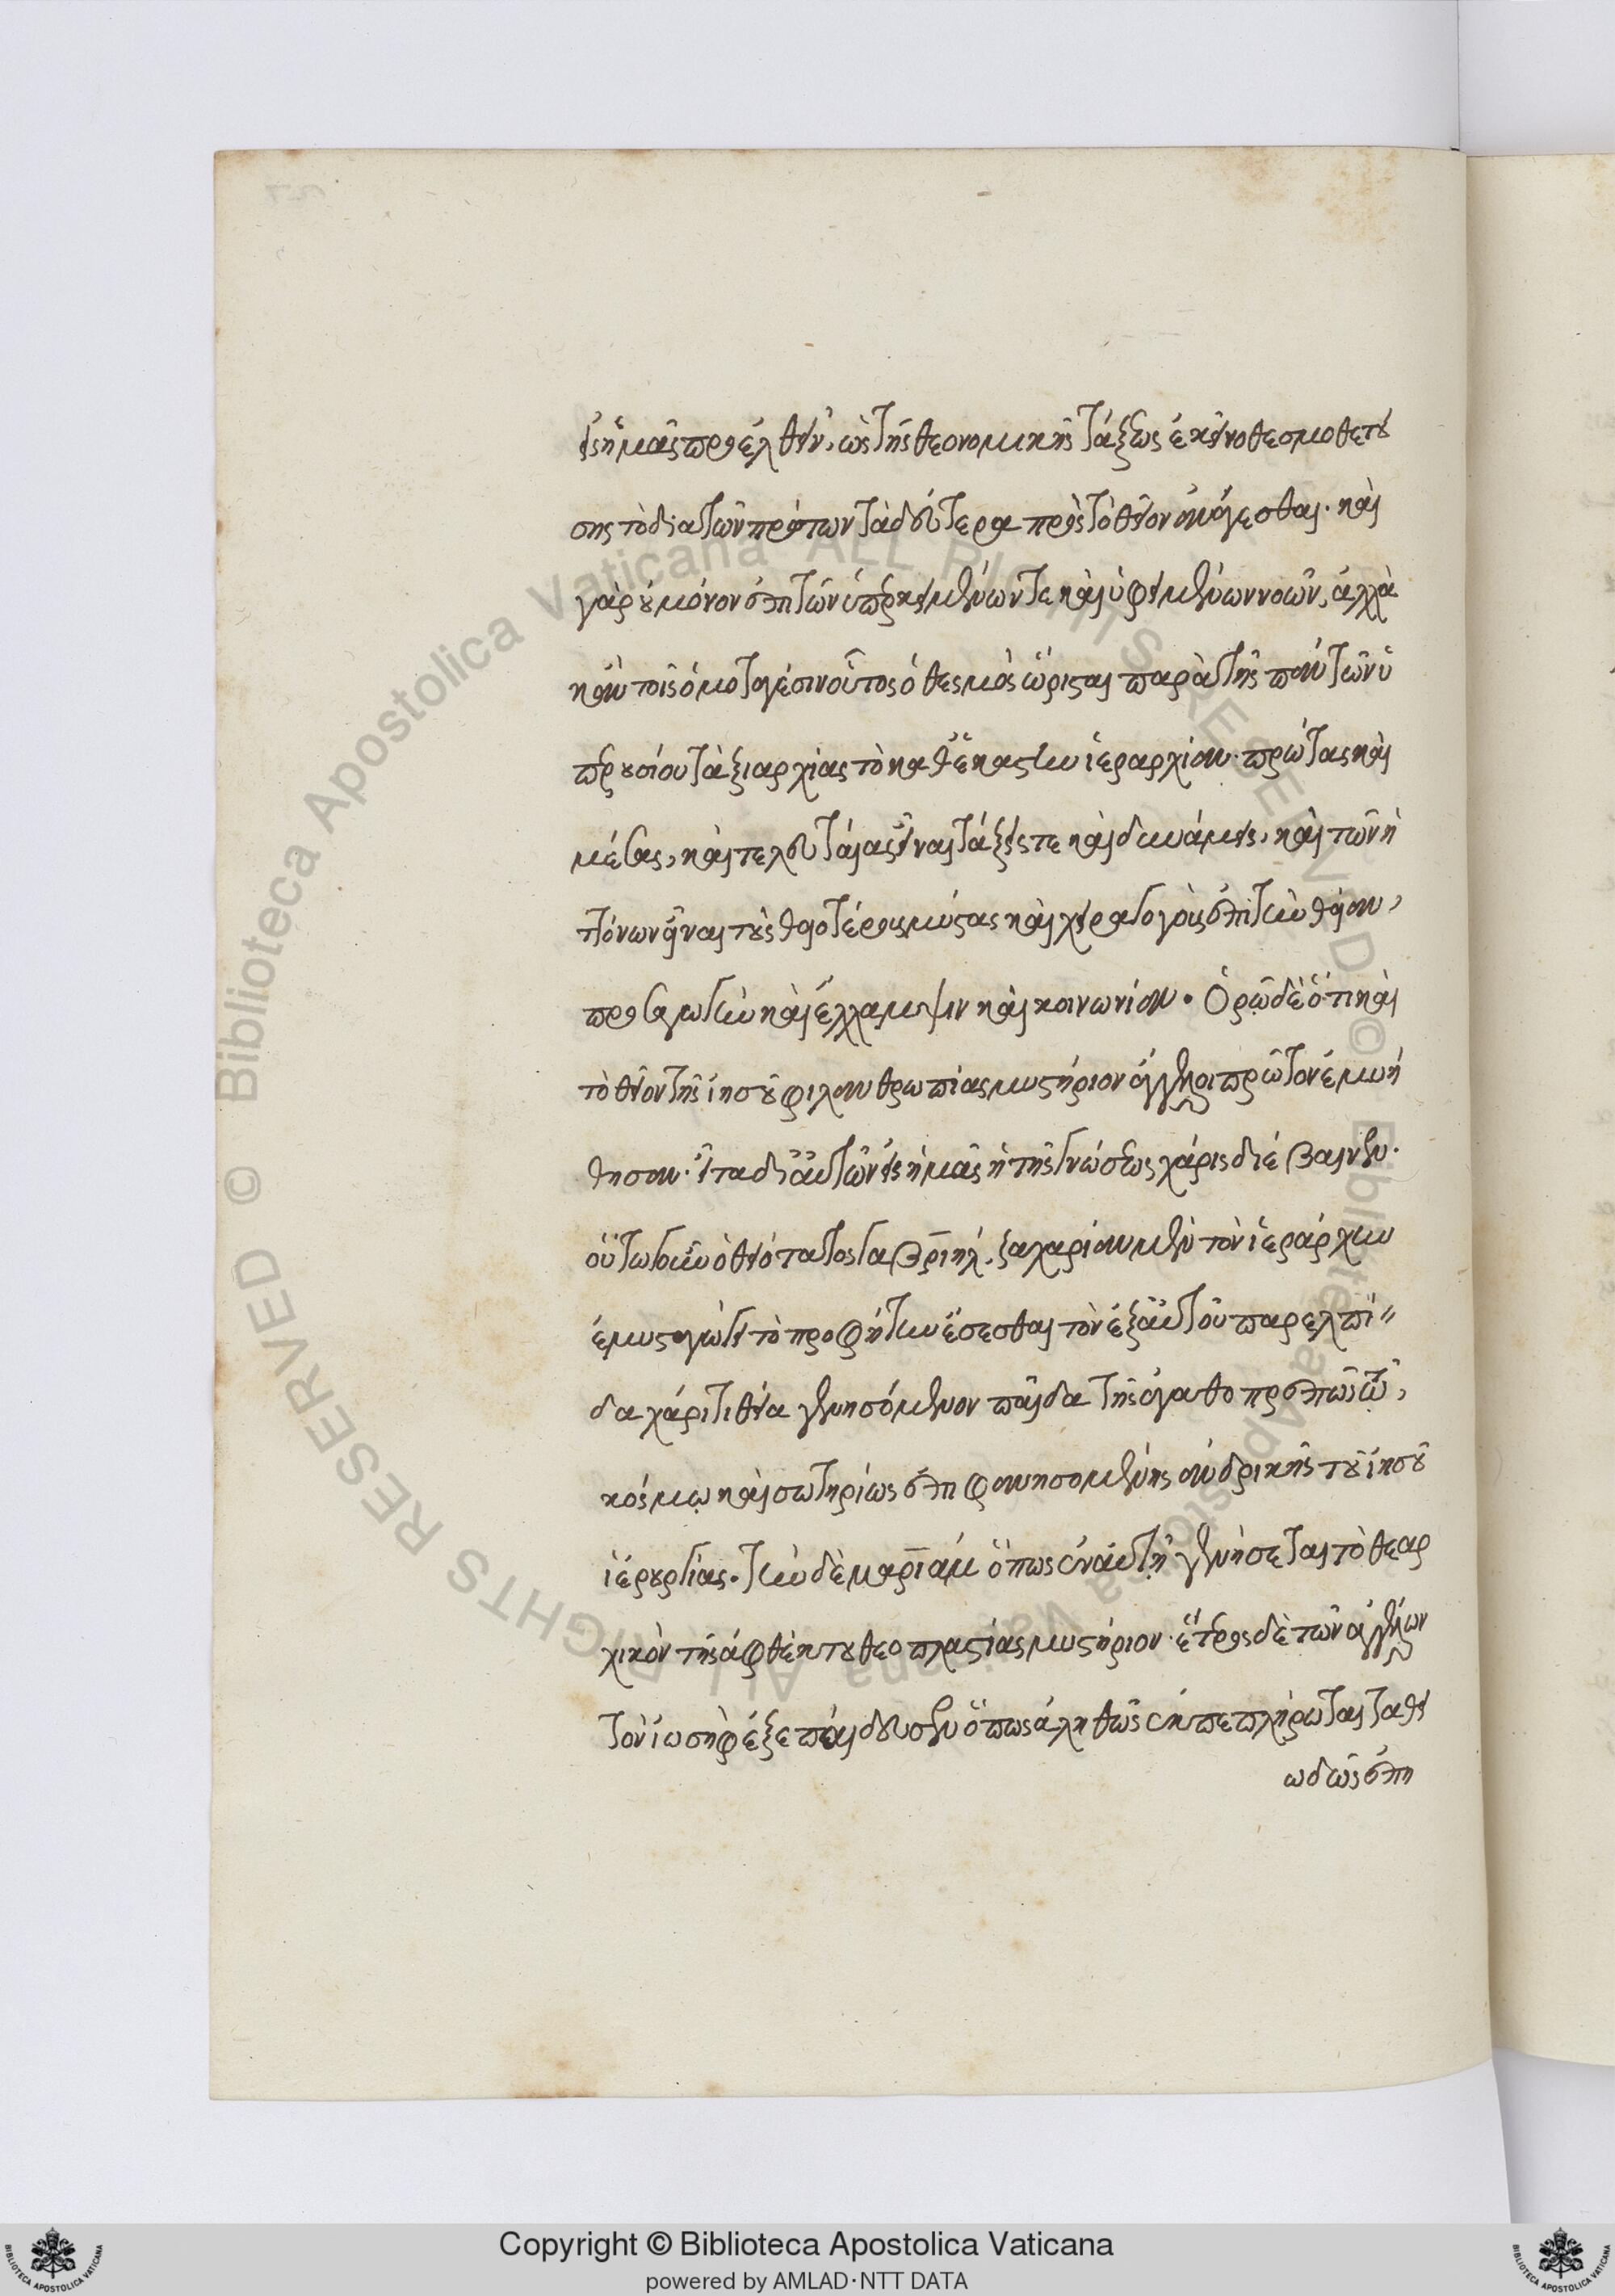 εἰς ἡμᾶς προελθεῖν, ὡς τῆς θεονομικῆς τάξεως ἐκεῖνο θεσμοθετού
σης τὸ διὰ τῶν πρώτων τὰ δεύτερα πρὸς τὸ θεῖον ἀνάγεσθαι. καὶ
γὰρ οὐ μόνον ἐπὶ τῶν ὑπερκειμένων τε καὶ ὑφειμένων νοῶν, ἀλλὰ
κἀν τοῖς ὁμοταγέσιν οὗτος ὁ θεσμὸς ὥρισται παρὰ τῆς πάντων ὑ
περουσίου ταξιαρχίας τὸ καθ' ἑκάστην ἱεραρχίαν. πρώτας καὶ
μέσας, καὶ τελευταίας εἶναι τάξεις τε καὶ δυνάμεις, καὶ τῶν ἡ
ττόνων εἶναι τοὺς θειοτέρους μύστας καὶ χειραγωγοὺς ἐπὶ τὴν θείαν,
προσαγωγὴν καὶ ἔλλαμψιν καὶ κοινωνίαν. Ὁρῶ δὲ ὅτι καὶ
τὸ θεῖον τῆς ἰησοῦ φιλανθρωπίας μυστήριον ἄγγελοι πρῶτον ἐμυή
θησαν. εἶτα δι' αὐτῶν εἰς ἡμᾶς ἡ τῆς γνώσεως χάρις διέβαινεν.
οὕτω γοῦν ὁ θειότατος γαβριὴλ, ζαχαρίαν μὲν τὸν ἱεράρχην
ἐμυσταγώγει τὸ προφήτην ἔσεσθαι τὸν ἐξ αὐτοῦ παρ' ἐλπί
δα χάριτι θεία γενησόμενον παῖδα τῆς ἀγαθοπρεπῶς τῷ,
κόσμῳ καὶ σωτηρίως ἐπιφανησομένης ἀνδρικῆς τοῦ ἰησοῦ
ἱερουργίας. τὴν δὲ μαριὰμ ὅπως ἐν αὐτῇ γενήσεται τὸ θεαρ
χικὸν τῆς ἀφθέκτου θεοπλαστίας μυστήριον. ἕτερος δὲ τῶν ἀγγέλων
τὸν ἰωσὴφ ἐξεπαίδευσεν ὅπως ἀληθῶς ἐκπεπλήρωται τὰ θει
ωδῶς ἐπη